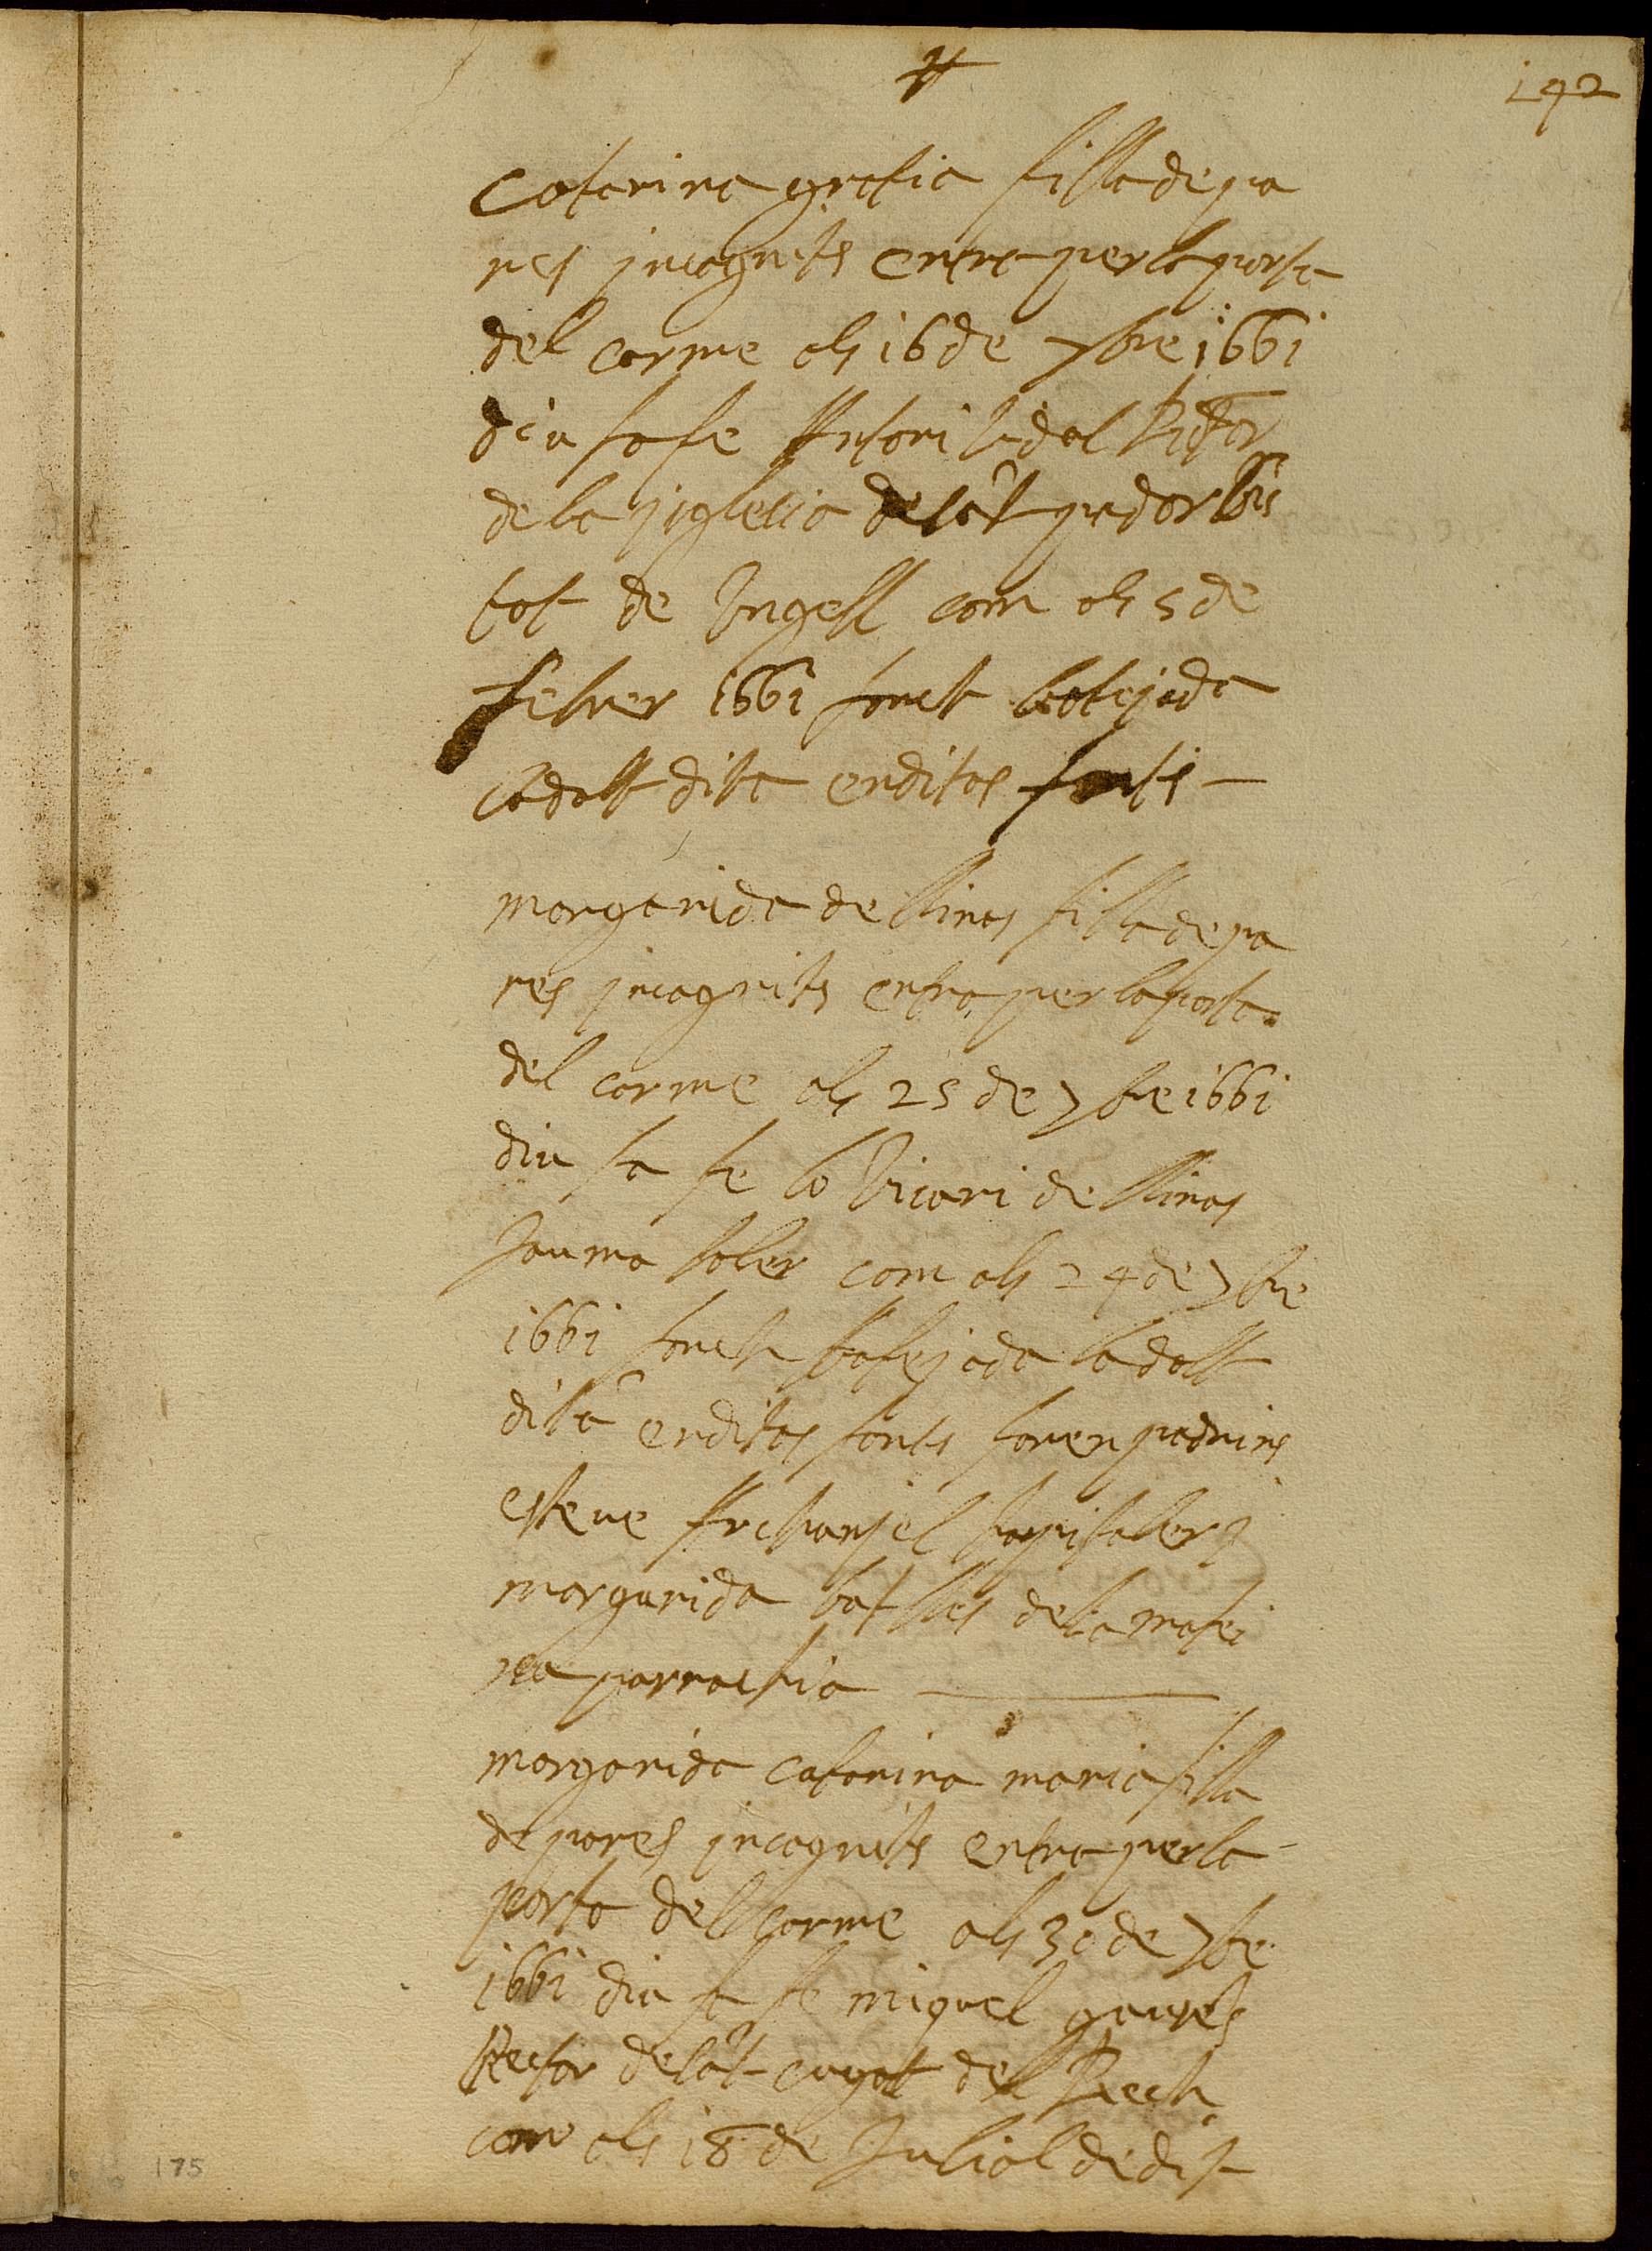 192
Catarina gratia filla de pa
res incognits entra per la porta
del carme als 16 de 7bre 1661
diu sa fe Antori Vidal Rictor
de la jglecia de sāt pedor bis
bat de Vrgell com als 5 de
febrer 1661 fonch batejada
la dalt dita en ditas fonts
margarida de llinas filla de pa
res incognits entra per la porta
del carme als 25 de 7bre 1661
diu sa fe lo Vicari de llinas
Jauma soler com als 24 de 7bre
1661 fonch batejada la dalt
dita en ditas fonts foren padrins
esteue Archanjel hospitaler i
margarida batlles de la matei
xa parrochia
margarida catarina maria filla
de pares incognits entra per la
porta del carme als 30 de 7bre
1661 diu sa fe miquel
Rector de sāt cugat del Rech
com als 18 de Juliol de dit
175